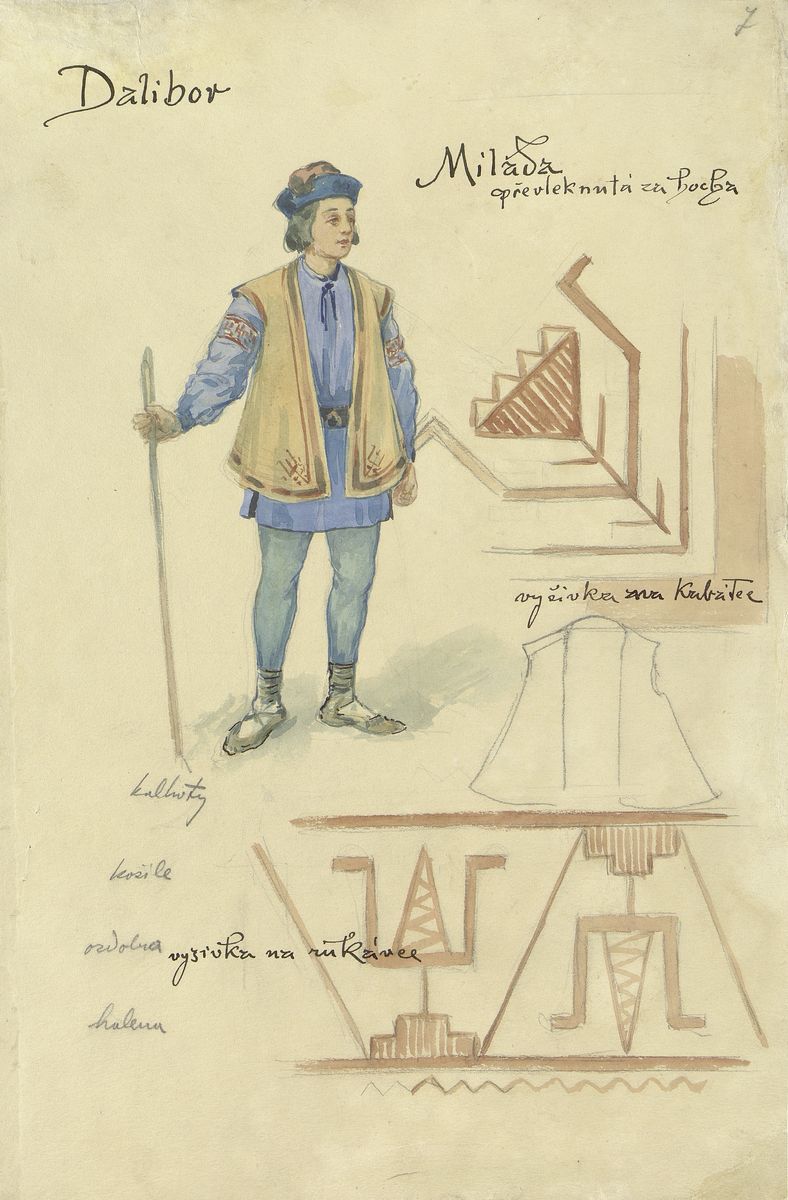 7
Dalibor
Milada
převleknutá za hocha
vyšivka na kabátee
kalhoty
košile
ozdoba
vyšivka na rukávee
halena